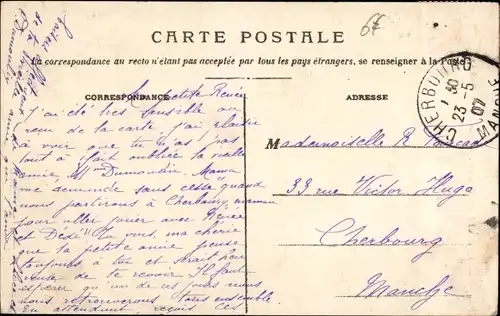 67
CARTE POSTALE
La correspondance au recto n'étant pas acceptée par tous les pays étrangers, se renseigner à la Poste
CORRESPONDANCE
ADRESSE
CHERBOURG
23-5
07
MANCHE
petite Renée
J'ai été très sensible au
reçu de ta carte j'ai plaisir
à voir que tu n'as pas
tout à fait oubliée ta vieille
amie, Mll Dumoulin, Mama
me demande sans cesse quand
nous partirons à Cherbourg maman
pour aller jouer avec Renée
et Dédé" Tu vois, ma chérie
que ta petite amie pense
toujours à toi et serait heu
reuse de te revoir Il faut
espérer qu'un de ces jours nous
nous retrouverons tous ensemble
En attendant reçois ces
Mademoiselle R
33 rue Victor Hugo
Cherbourg
Manche